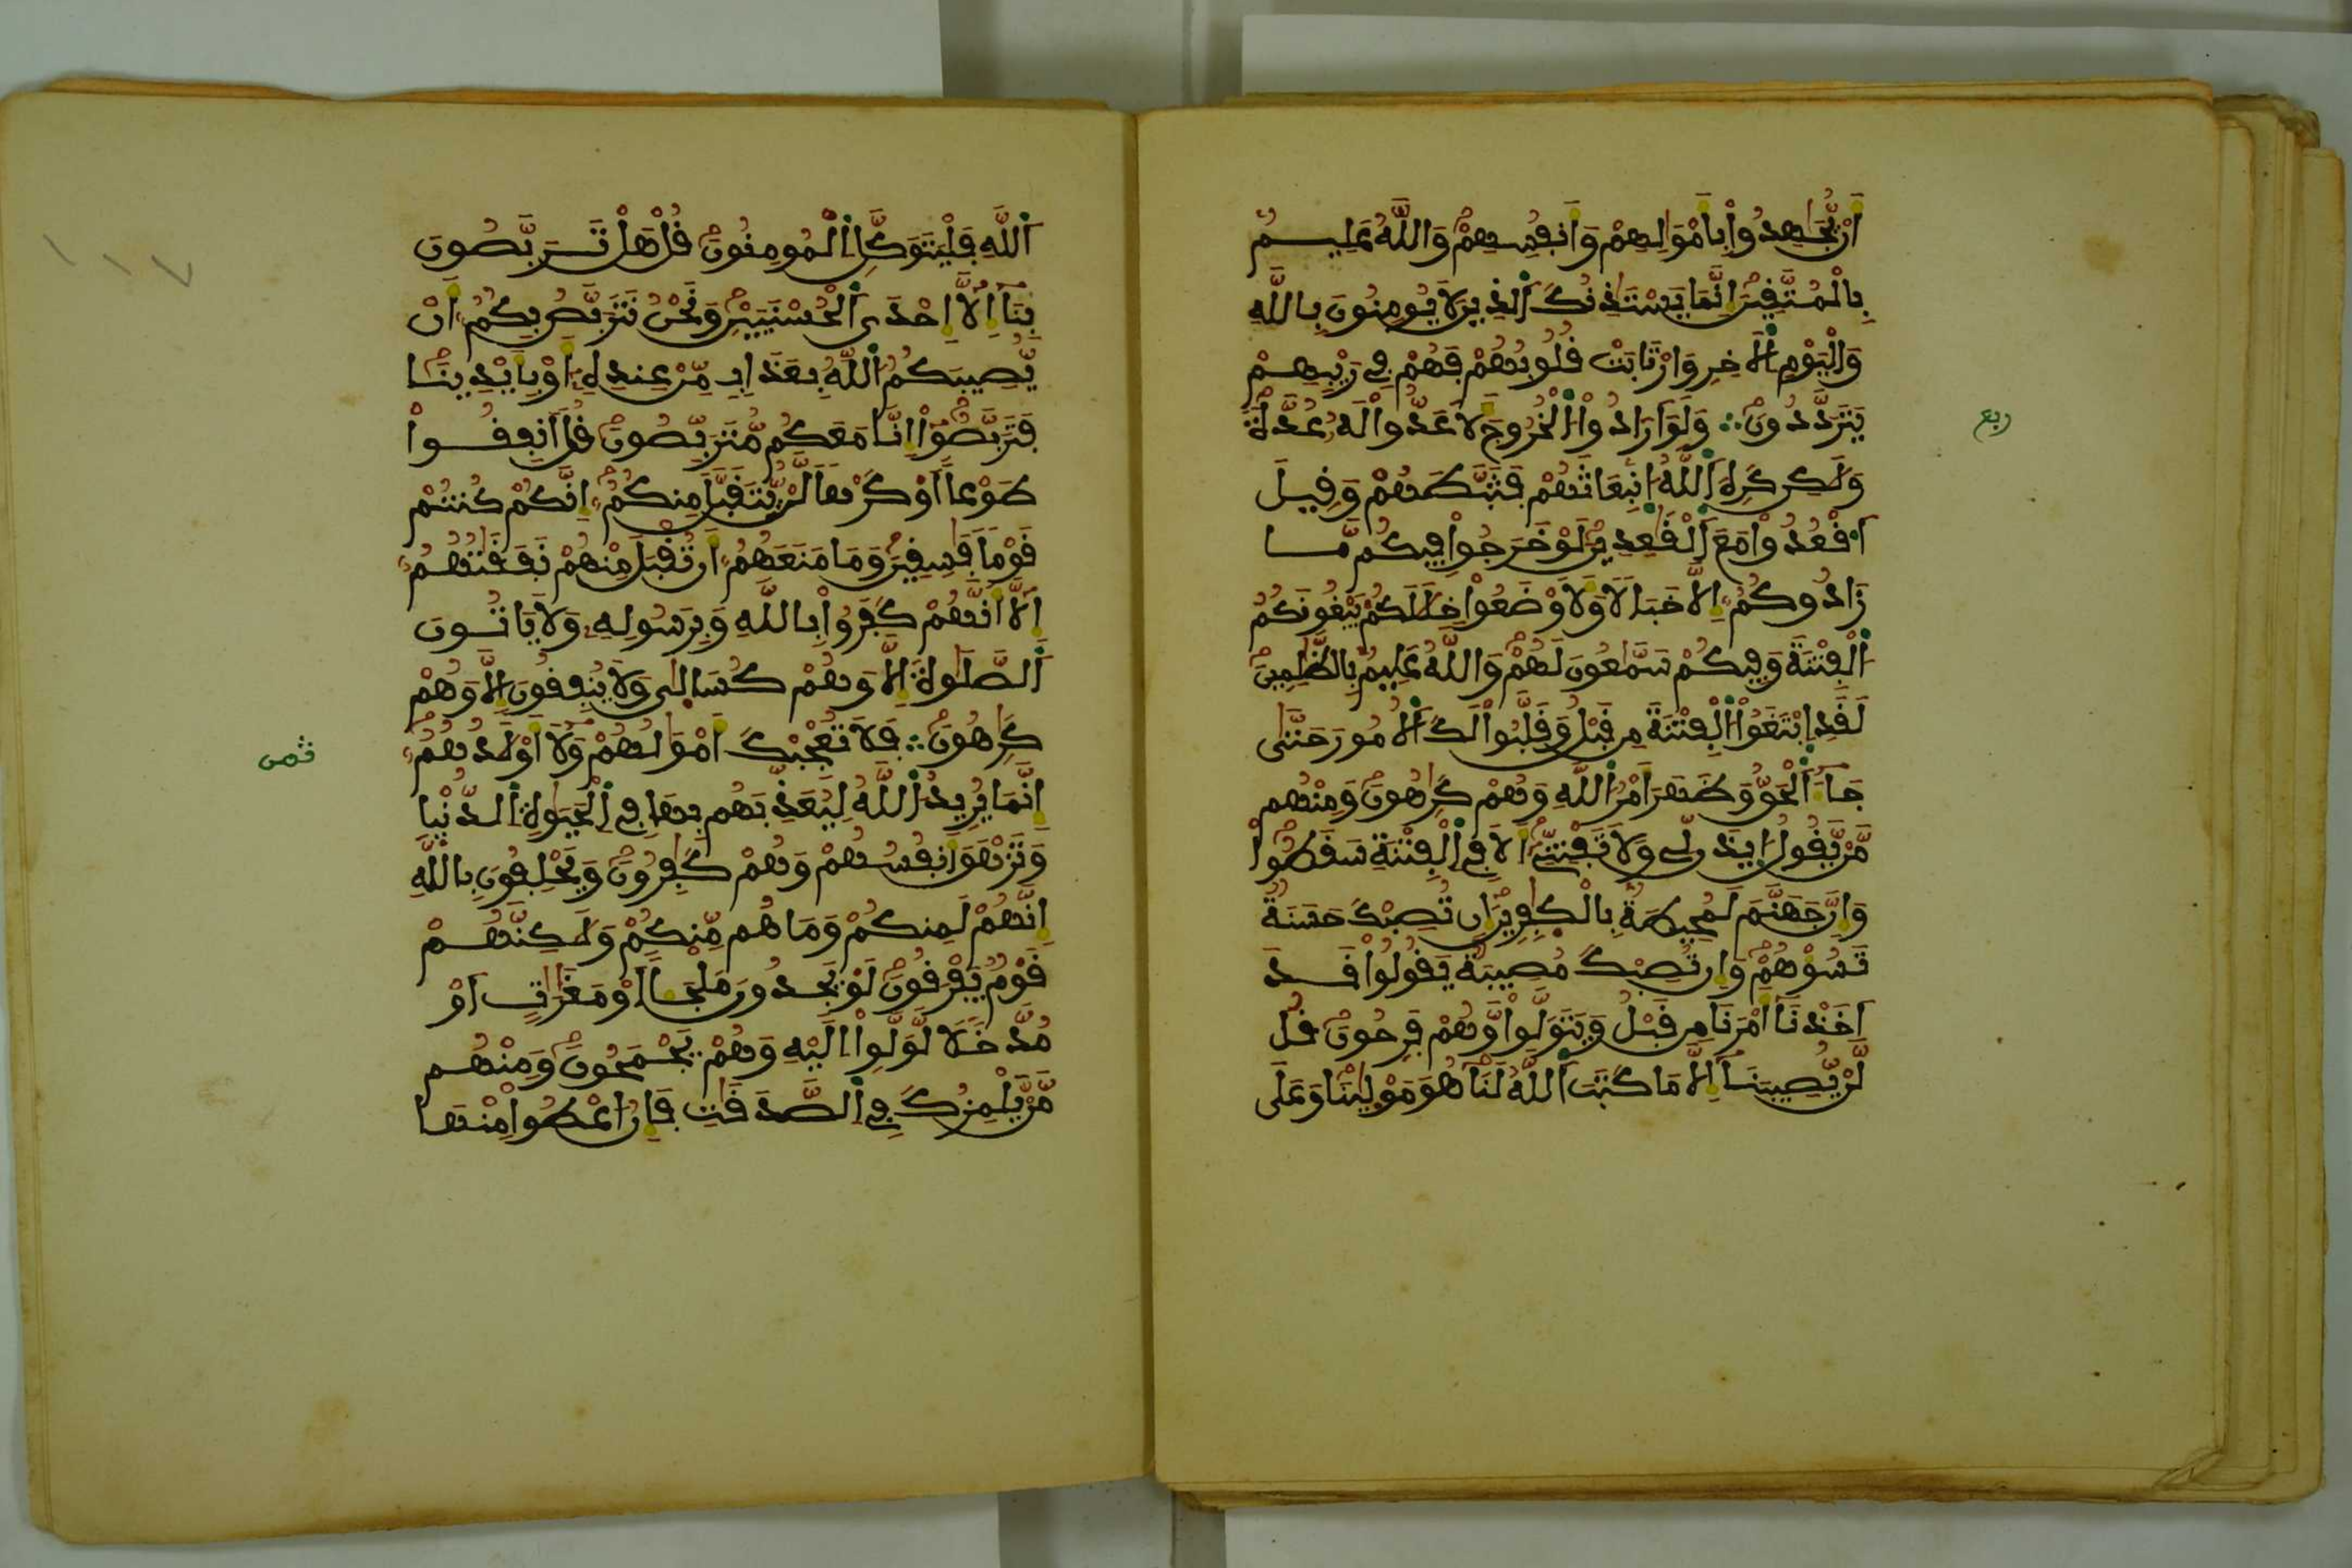 أَنْ يُّجَٰهِدُواْ بِأَمْوَٰلِهِمْ وَأَنفُسِهِمْ وَاللَّهُ عَلِيمٌ
بِالْمُتَّقِينَ إِنَّمَا يَسْتَٰذِنُكَ اَلذِينَ لَا يُومِنُونَ بِاللَّهِ
وَالْيَوْمِ اِلَاخِرِ وَارْتَابَتْ قُلُوبُهُمْ فَهُمْ فِے رَيْبِهِمْ
يَتَرَدَّدُونَ ∴ وَلَوَ اَرَادُواْ اُلْخُرُوجَ لَأَعَدُّواْ لَهُۥ عُدَّةً
وَلَٰكِن كَرِهَ اَللَّهُ اُنۢبِعَاثَهُمْ فَثَبَّطَهُمْ وَقِيلَ
اَ۟قْعُدُواْ مَعَ اَلْقَٰعِدِينَ لَوْ خَرَجُواْ فِيكُم مَّا
زَادُوكُمُۥٓ إِلَّا خَبَالًا وَلَأَوْضَعُواْ خِلَٰلَكُمْ يَبْغُونَكُمُ
اُلْفِتْنَةَ وَفِيكُمْ سَمَّٰعُونَ لَهُمْ وَاللَّهُ عَلِيمٌ بِالظَّٰلِمِينَ
لَقَدِ اِبْتَغَوُاْ اُلْفِتْنَةَ مِن قَبْلُ وَقَلَّبُواْ لَكَ اَلُامُورَ حَتَّىٰ
جَآءَ اَلْحَقُّ وَظَهَرَ أَمْرُ اُللَّهِ وَهُمْ كَٰرِهُونَ وَمِنْهُم
مَّنْ يَّقُولُ اُيذَن لِّے وَلَا تَفْتِنِّےٓ أَلَا فِے اِلْفِتْنَةِ سَقَطُواْ
وَإِنَّ جَهَنَّمَ لَمُحِيطَةٌۢ بِالْكٰ۪فِرِينَ إِن تُصِبْكَ حَسَنَةٌ
تَسُؤْهُمْ وَإِن تُصِبْكَ مُصِيبَةٌ يَقُولُواْ قَدَ
اَخَذْنَآ أَمْرَنَا مِن قَبْلُ وَيَتَوَلَّواْ وَّهُمْ فَرِحُونَ قُل
لَّنْ يُّصِيبَنَآ إِلَّا مَا كَتَبَ اَللَّهُ لَنَا هُوَ مَوْلَيٰنَا وَعَلَى
ربع
اَللَّهِ فَلْيَتَوَكَّلِ اِلْمُومِنُونَ قُلْ هَلْ تَرَبَّصُونَ
بِنَآ إِلَّآ إِحْدَى اَلْحُسْنَيَيْنِ وَنَحْنُ نَتَرَبَّصُ بِكُمُۥٓ أَنْ
يُّصِيبَكُمُ اُللَّهُ بِعَذَابٍ مِّنْ عِندِهِۦٓ أَوْ بِأَيْدِينَا
فَتَرَبَّصُوٓاْ إِنَّا مَعَكُم مُّتَرَبِّصُونَ قُلَ اَنفِقُواْ
طَوْعًا اَوْ كَرْهًا لَّنْ يُّتَقَبَّلَ مِنكُمُۥٓ إِنَّكُمْ كُنتُمْ
قَوْمًا فَٰسِقِينَ وَمَا مَنَعَهُمُۥٓ أَن تُقْبَلَ مِنْهُمْ نَفَقَٰتُهُمُۥٓ
إِلَّآ أَنَّهُمْ كَفَرُواْ بِاللَّهِ وَبِرَسُولِهِۦ وَلَا يَاتُونَ
اَلصَّلَوٰةَ إِلَّا وَهُمْ كُسَالٜىٰ وَلَا يُنفِقُونَ إِلَّا وَهُمْ
كَٰرِهُونَ ∴ فَلَا تُعْجِبْكَ أَمْوَٰلُهُمْ وَلَآ أَوْلَٰدُهُمُۥٓ
إِنَّمَا يُرِيدُ اُللَّهُ لِيُعَذِّبَهُم بِهَا فِے اِلْحَيَوٰةِ اِلدُّنْيَا
وَتَزْهَقَ أَنفُسُهُمْ وَهُمْ كَٰفِرُونَ وَيَحْلِفُونَ بِاللَّهِ
إِنَّهُمْ لَمِنكُمْ وَمَا هُم مِّنكُمْ وَلَٰكِنَّهُمْ
قَوْمٌ يَفْرَقُونَ لَوْ يَجِدُونَ مَلْجَـًٔا اَوْ مَغَٰرَٰتٍ اَوْ
مُدَّخَلًا لَّوَلَّواْ اِلَيْهِ وَهُمْ يَجْمَحُونَ وَمِنْهُم
مَّنْ يَّلْمِزُكَ فِے اِلصَّدَقَٰتِ فَإِنُ اُعْطُواْ مِنْهَا
ثمن
١١٧